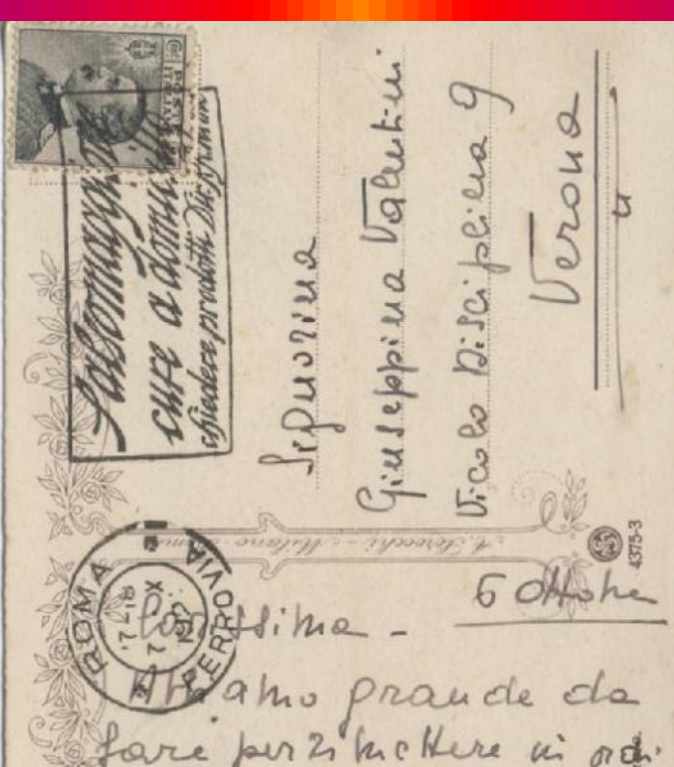 POSTE ITALIANE
Salsomaggiore
cure a domicilio
chiedere prodotti
Signorina
Giuseppina Valentini
Vicolo Disciplina 9
Verona
Milano
4375-3
ROMA
FERROVIA
6 Ottobre
Carissima -
Abbiamo grande da
fare per rimettere in ordi